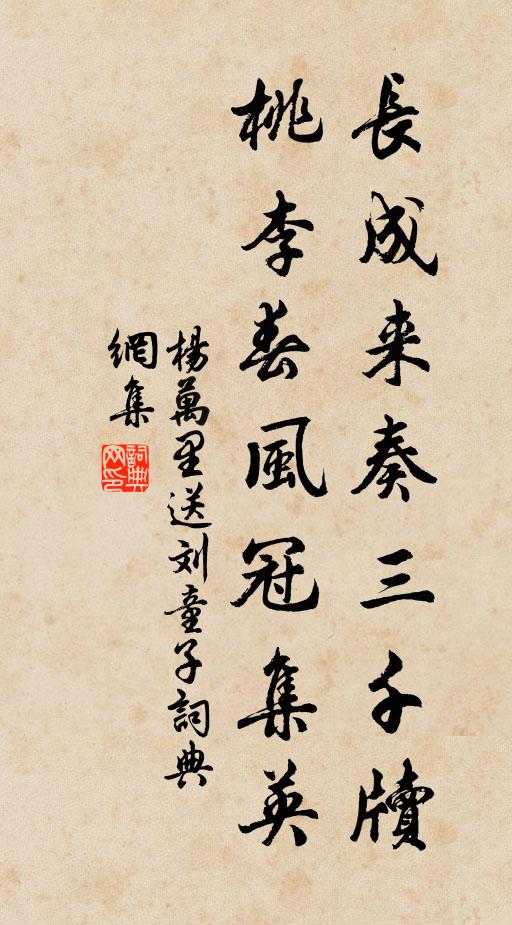 長成来奏三千牘
桃李春風冠集英
楊萬里送刘童子詞典
網集
詞典網印